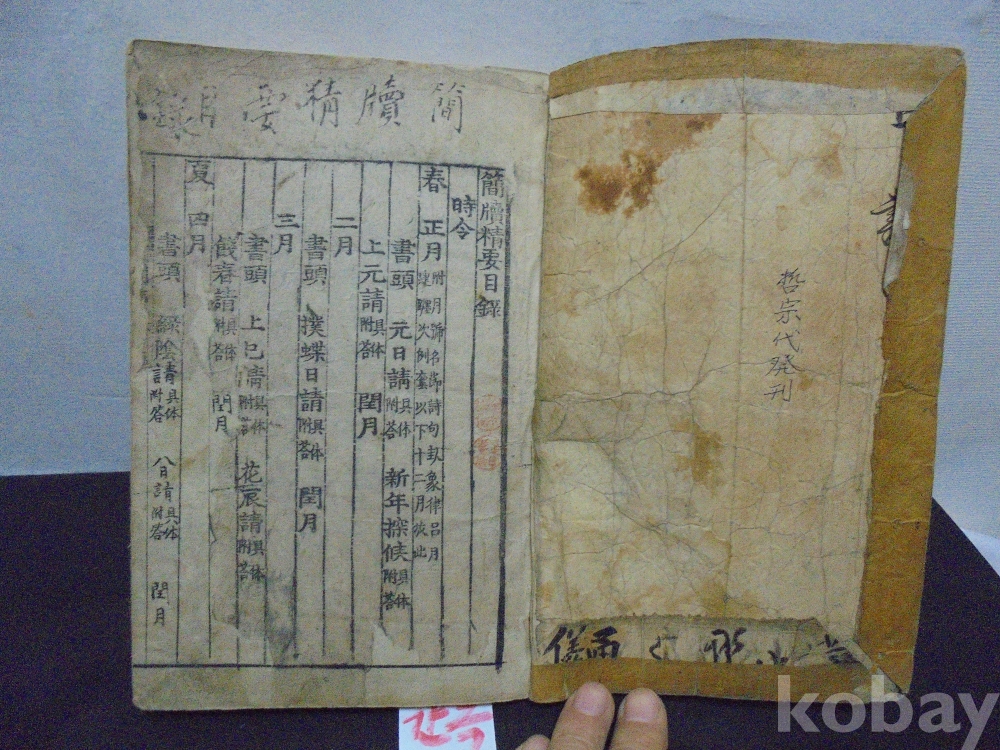 哲宗代發刊
簡牘精要目錄
簡牘精要目錄
時令
春 正月 附月號名節詩句卦象律呂月
建躔次例套以下十二月放此
書頭 元日請 具体附答 新年探候 具体附答
上元請 具体附答 閏月
二月
書頭 撲蝶日請 具体附答 閏月
三月
書頭 上巳請 具体附答 花辰請 具体附答
餞春請 具体附答 閏月
夏 四月
書頭 綠陰請 具体附答 八日請 具体附答 閏月
kobay